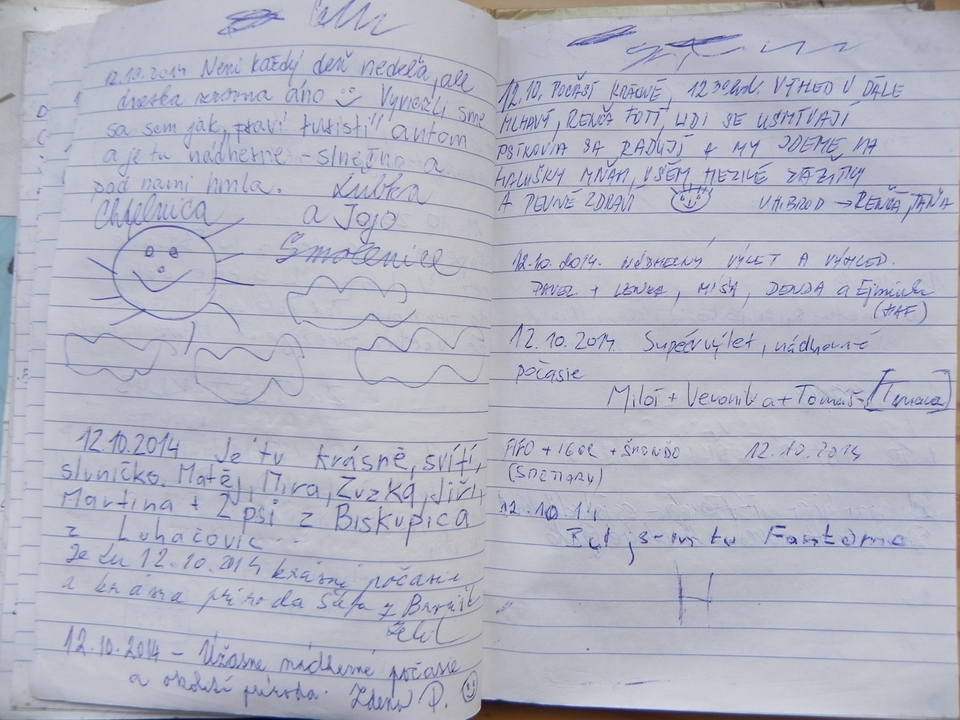 12.10.2014 Není každý deň nedeľa, ale
dneska zrovna áno Vyviezli sme
sa sem jak „praví turisti" autom
a je tu nádherne - slnečno a
pod nami hmla. Ľubka
Chtelnica a Jojo
Smolenice
12.10.2014 Je tu krásně, svítí
sluníčko. Matěj, Míra, Zuzka, Jiří,
Martina + 2 psi z Biskupic
z Luhačovic
Je tu 12.10.2014 krásné počasie
a krásna príroda
12.10.2014 - Úžasne nádherné počasie
a okolší príroda. Zdena P.
12.10. POČASÍ KRÁSNÉ, VÝHLED V DÁLE
MLHAVÝ, RENČA FOTÍ, LIDI SE USMÍVAJÍ
PSÍKOVIA SA RADUJÍ A MY JDEME NA
HALUŠKY MŇAM, VŠEM HEZKÉ ZÁŽITKY
A PEVNÉ ZDRAVÍ UH.BROD → RENČA, TÁŇA
12.10.2014. NÁDHERNÝ VÝLET A VÝHLED.
PAVEL + LENKA, MÍŠA, DENDA a
(HAF)
12.10.2014 Supér výlet, nádherné
počasie
Miloš + Veronika + Tomáš
+ IGOR + 12.10.2014
12.10.14
Byl jsem tu Fantoma
H